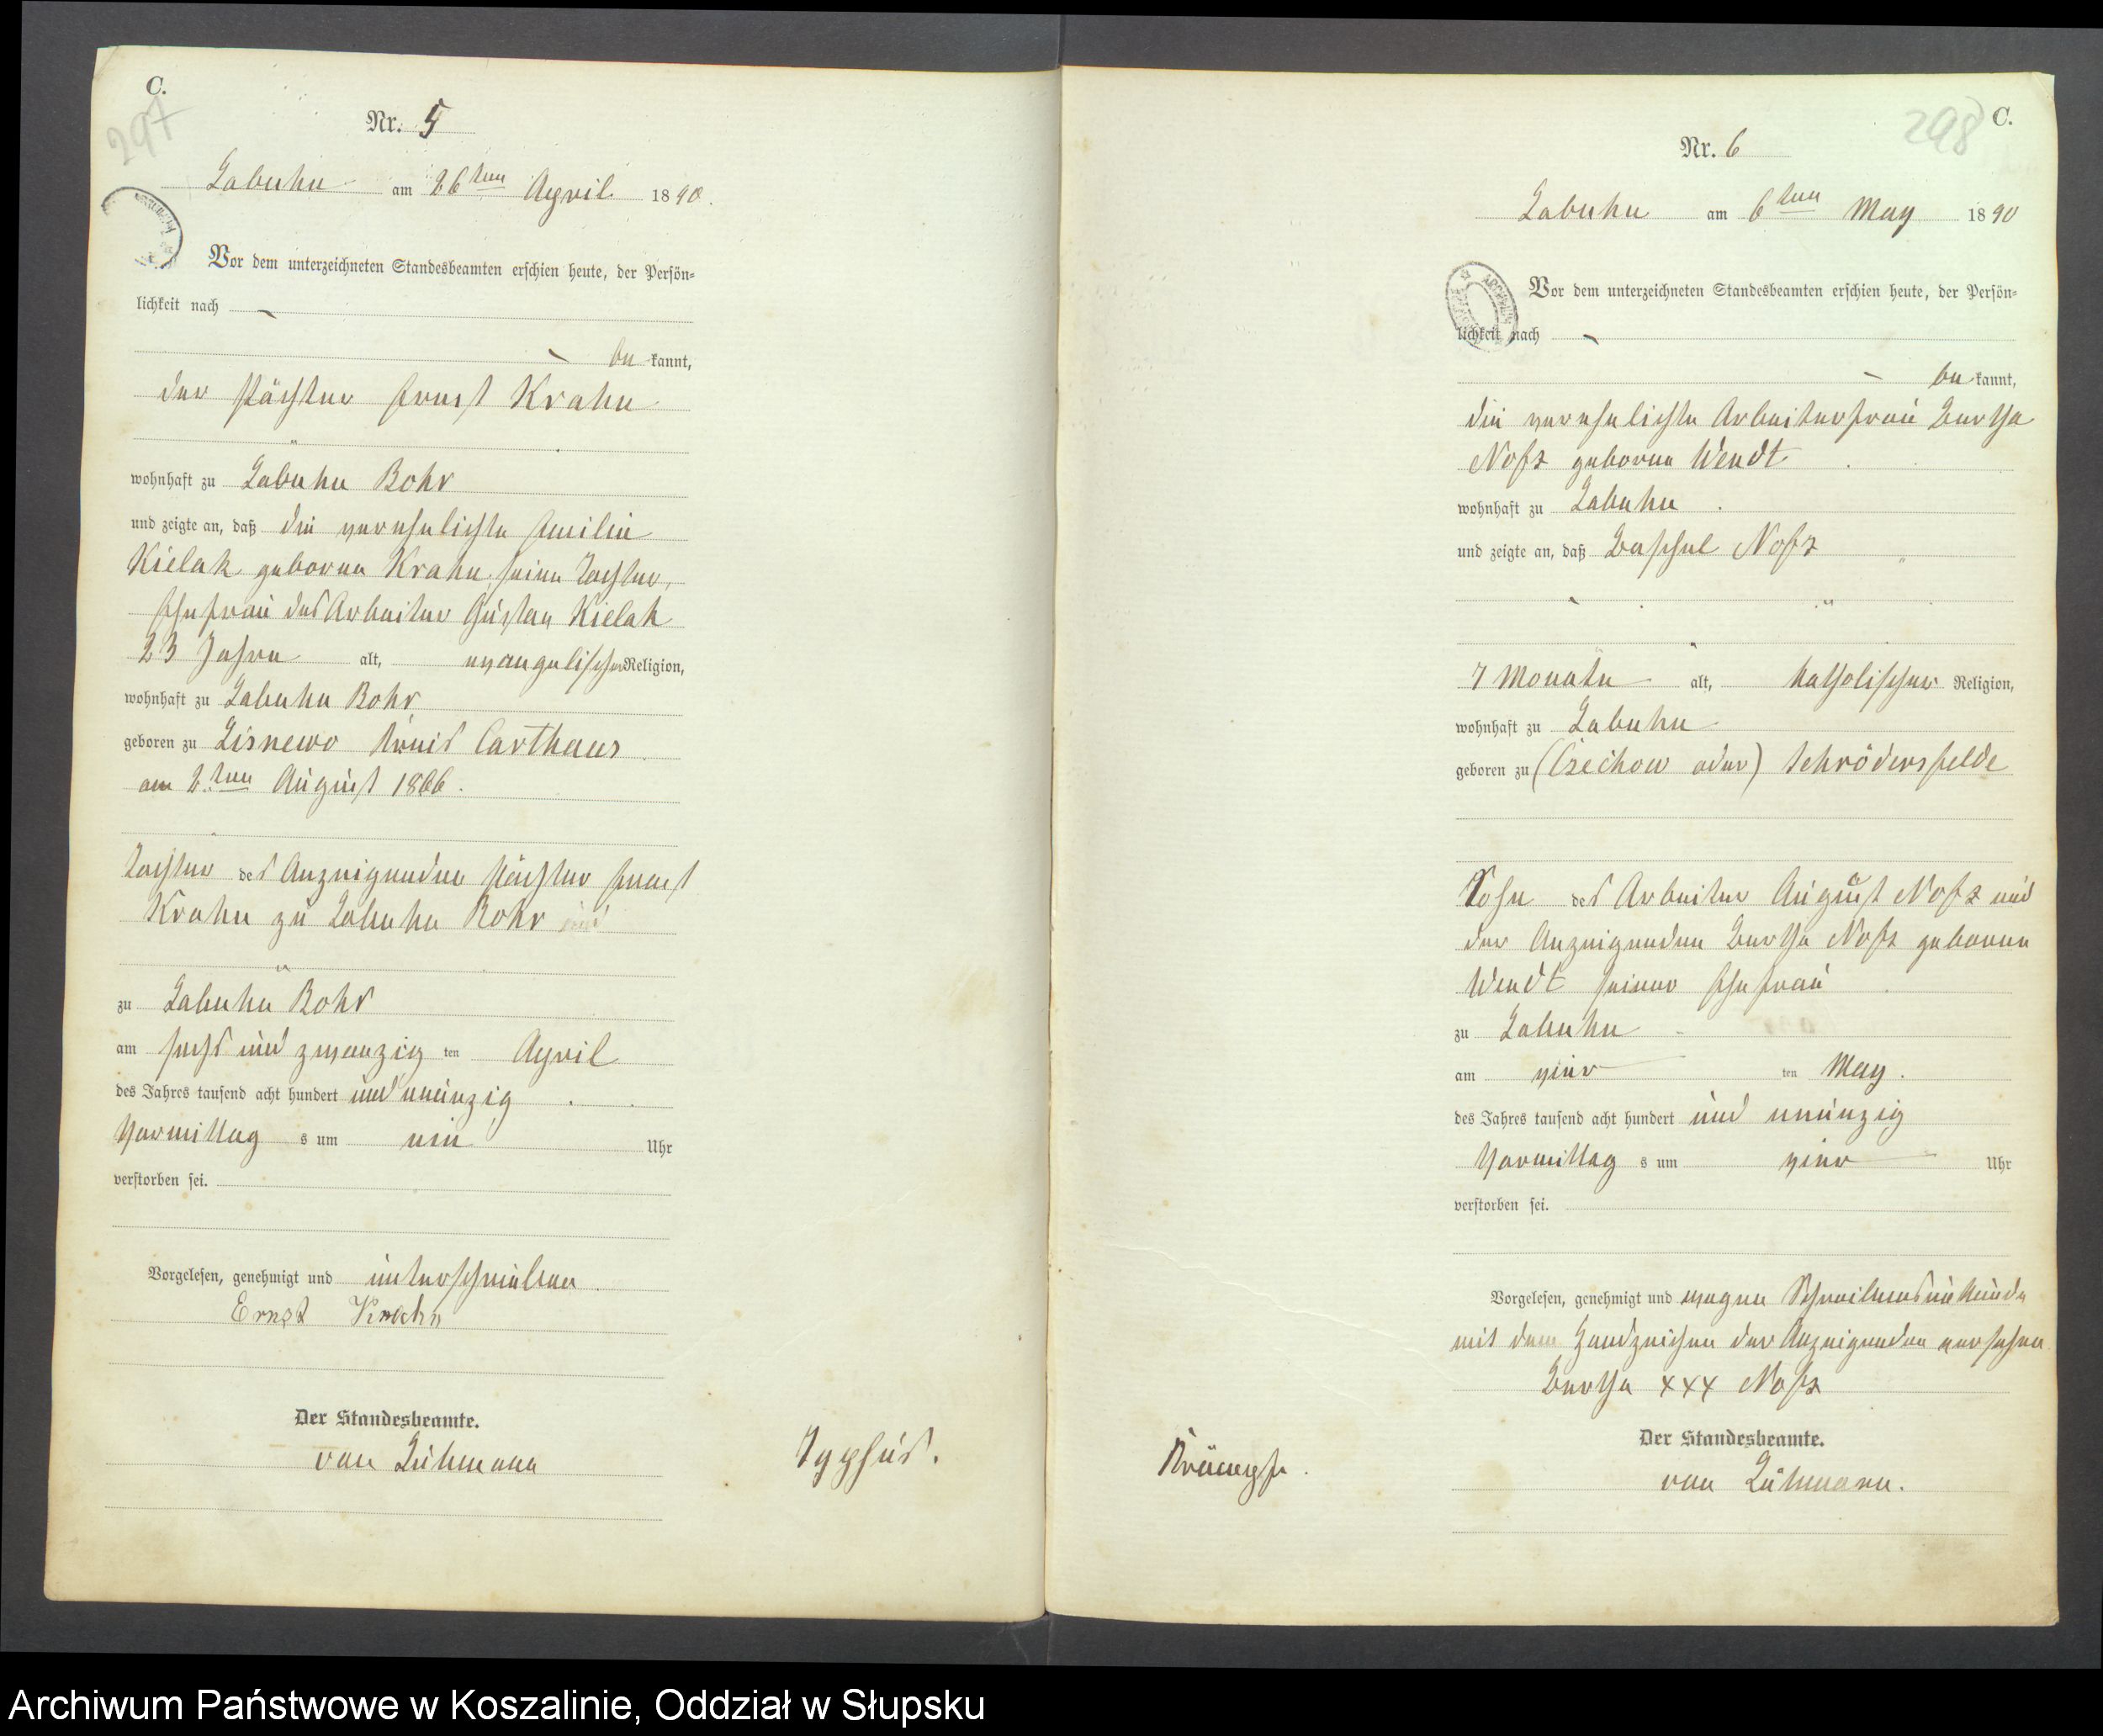 C.
297
Nr. 5
Labuhn am 26ten April 1890.
Vor dem unterzeichneten Standesbeamten erschien heute, der Persön-
lichkeit nach
be kannt,
der Pächter Ernst Krahn
wohnhaft zu Labuhn Bohr
und zeigte an, daß die verehelichte Emilie
Kielak geborne Krahn, seine Tochter,
Ehefrau des Arbeiter Gustav Kielak
23 Jahre alt, evangelischer Religion,
wohnhaft zu Labuhn Bohr
geboren zu Lisnewo Kreis Carthaus
am 2ten August 1866.
Tochter des Anzeigenden Pächter Ernst
Krahn zu Labuhn Bohr
zu Labuhn Bohr
am sechs und zwanzig ten April
des Jahres tausend acht hundert und neunzig
Vormittag s um ein Uhr
verstorben sei.
Vorgelesen, genehmigt und unterschrieben
Ernst Krahn
Der Standesbeamte.
von Lühmann
Typhus.
298
C.
Nr. 6
Labuhn am 6ten May 1890
Vor dem unterzeichneten Standesbeamten erschien heute, der Persön-
lichkeit nach
be kannt,
die verehelichte Arbeiterfrau Bertha
Nofz geborne Wendt
wohnhaft zu Labuhn
und zeigte an, daß Nofz
7 Monate alt, katholischer Religion,
wohnhaft zu Labuhn
geboren zu (Czechow oder) Schrödersfelde
Sohn des Arbeiter August Nofz und
der Anzeigenden Bertha Nofz geborne
Wendt seiner Ehefrau
zu Labuhn
am vier ten May.
des Jahres tausend acht hundert und neunzig
Vormittag s um vier Uhr
verstorben sei.
Vorgelesen, genehmigt und wegen Schreibensunkunde
mit dem Handzeichen der Anzeigenden versehen
Bertha xxx Nofz
Der Standesbeamte.
von Lühmann.
Krämpfe.
Archiwum Państwowe w Koszalinie, Oddział w Słupsku